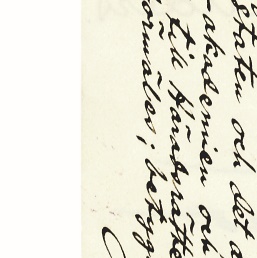 staten och det a
-akademien och
till Häradsrätte
ormäler; betyg